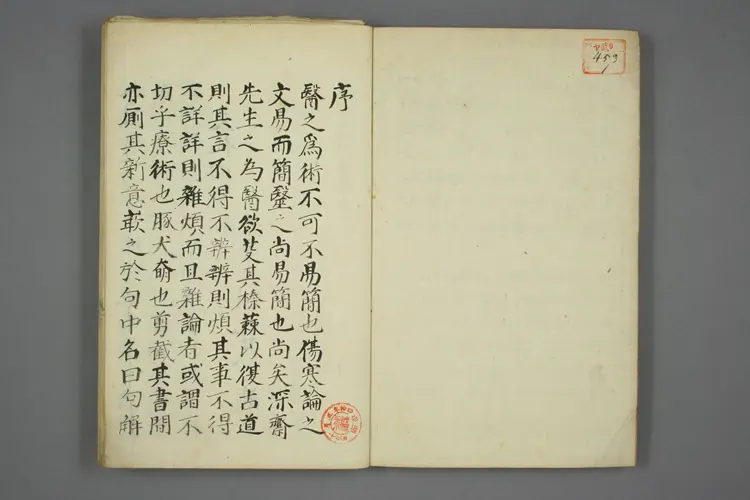 序
醫之爲術不可不易簡也傷寒論之
文易而簡毉之尚易簡也尚矣深齋
先生之為醫欲芟其榛蕪以復古道
則其言不得不辨辨則煩其事不得
不詳詳則雜煩而且雜論者或謂不
切乎療術也豚犬奝也剪截其書間
亦厠其新意嵌之於句中名曰句解
459
1